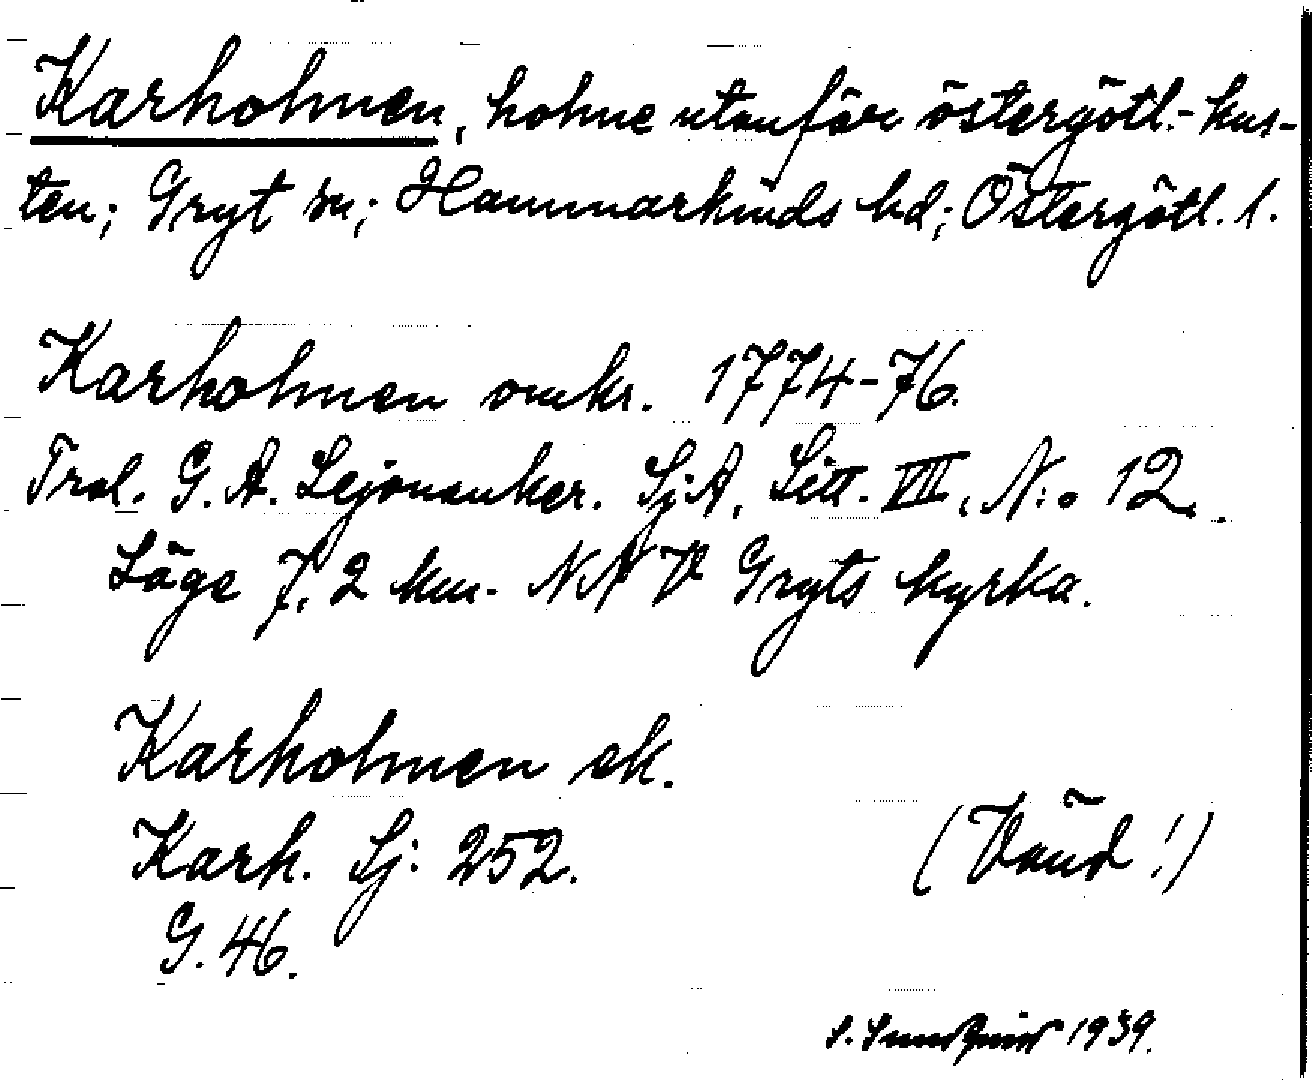 Karholmen, holme utanför östergötl.-kus-
ten; Gryt sn; Hammarkinds hd; Östergötl. l.
Karholmen omkr. 1774-76.
Trol. G. A. Lejonanker. SjA, Litt. VII, N:o 12.
Läge 7,2 km. NNV Gryts kyrka.
Karholmen ek.
Karh. Sj: 252.
(Vänd!)
G. 46.
S. Sundquist 1939.